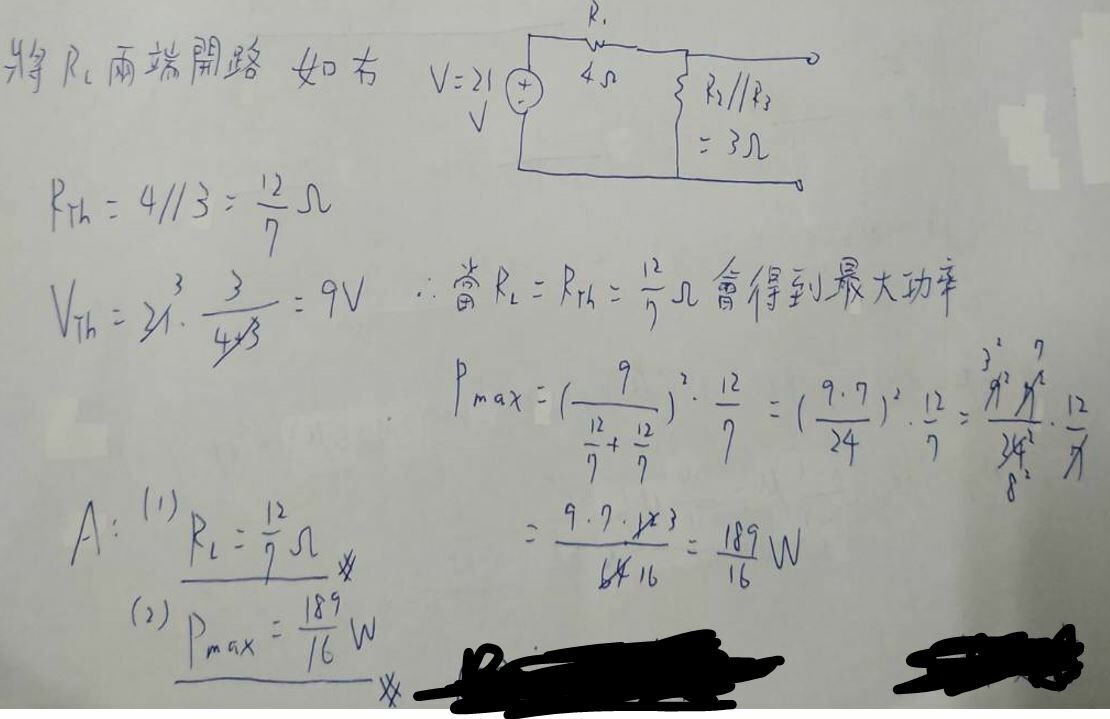 將 RL 兩端開路 如右
V=21 V
R1
4Ω
R2//R3
= 3Ω
RTh = 4//3 = 12/7 Ω
VTh = 21^3 · 3/(4+3) = 9V
∴ 當 RL = RTh = 12/7 Ω 會得到最大功率
Pmax = (9/(12/7 + 12/7))² · 12/7 = (9·7/24)² · 12/7 = 3² 9² 7 7²/24² 8² · 12/7
= 9·7·12 3/64 16 = 189/16 W
A: (1) RL = 12/7 Ω
(2) Pmax = 189/16 W